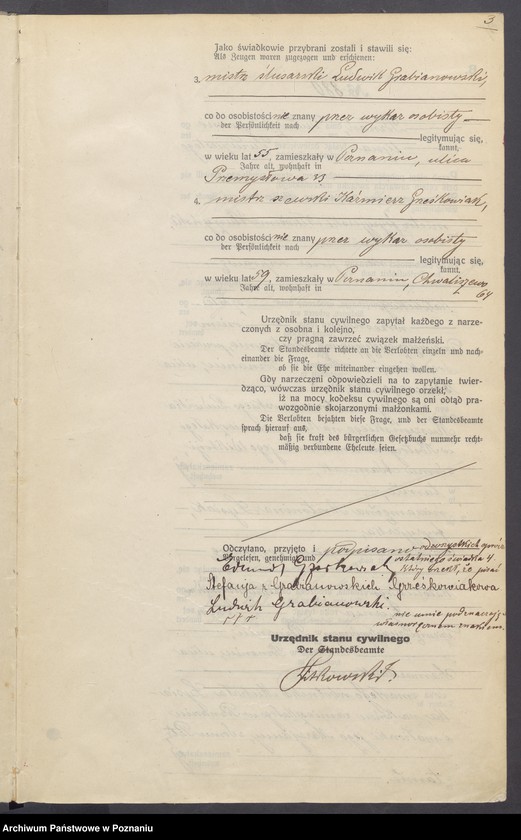 3
Jako świadkowie przybrani zostali i stawili się:
Als Zeugen waren zugezogen und erschienen:
3. mistrz ślusarski Ludwik Grabianowski,
co do osobistości nie znany przez wykaz osobisty
der Persönlichkeit nach
legitymując się,
kannt,
w wieku lat 55, zamieszkały w Poznaniu, ulica
Jahre alt, wohnhaft in
Przemysłowa 23
4. mistrz szewski Kaźmierz Grześkowiak,
co do osobistości nie znany przez wykaz osobisty
der Persönlichkeit nach
legitymując się,
kannt,
w wieku lat 59, zamieszkały w Poznaniu, Chwaliszewo
Jahre alt, wohnhaft in
64
Urzędnik stanu cywilnego zapytał każdego z narze-
czonych z osobna i kolejno,
czy pragną zawrzeć związek małżeński.
Der Standesbeamte richtete an die Verlobten einzeln und nach-
einander die Frage,
ob sie die Ehe miteinander eingehen wollen.
Gdy narzeczeni odpowiedzieli na to zapytanie twier-
dząco, wówczas urzędnik stanu cywilnego orzekł,
iż na mocy kodeksu cywilnego są oni odtąd pra-
wozgodnie skojarzonymi małżonkami.
Die Verlobten bejahten diese Frage, und der Standesbeamte
sprach hierauf aus,
daß sie kraft des bürgerlichen Gesetzbuchs nunmehr recht-
mäßig verbundene Eheleute seien.
Odczytano, przyjęto i podpisano od wszystkich oprócz
Vorgelesen, genehmigt und ostatniego świadka 4
który orzekł, że pisać
Stefanja z Grabianowskich Grześkowiakowa
Ludwik Grabianowski.
nie umie podznaczając
własnoręcznem znakiem.
+++
Urzędnik stanu cywilnego
Der Standesbeamte
Archiwum Państwowe w Poznaniu